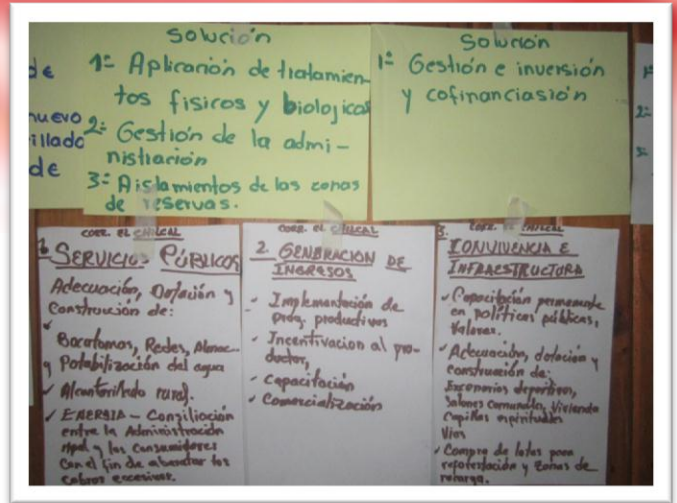 de
nuevo
illado
de
Solución
1º Aplicación de tratamien-
tos fisicos y biologicas
2º Gestión de la admi-
nistración
3º Aislamientos de las zonas
de reservas.
Solución
1º Gestión e inversión
y cofinanciasión
1º
2º
3º
CORR. EL CHILCAL
1. SERVICIOS PÚBLICOS
Adecuación, Dotación y
Construcción de:
✓
Bocatomas, Redes, Almac.
y Potabilización del agua
✓ Alcantarillado rural.
✓ ENERGIA - Consiliación
entre la Administración
mpal y los Consumidores
Con el fin de abaratar los
cobros excesivos.
CORR. EL CHILCAL
2. GENERACION DE
INGRESOS
- Implementación de
proy. productivos
- Incentivacion al pro-
ductor,
- Capacitación
✓ Comercialización
3. CORR. EL CHILCAL
CONVIVENCIA E
INFRAESTRUCTURA
✓ Capacitación permanente
en políticas públicas,
Valores.
✓ Adecuación, dotación y
construcción de:
Escenarios deportivos,
Salones Comunales, Vivienda
Capillas espirituales
Vias
✓ Compra de lotes para
reforestación y zonas de
recarga.